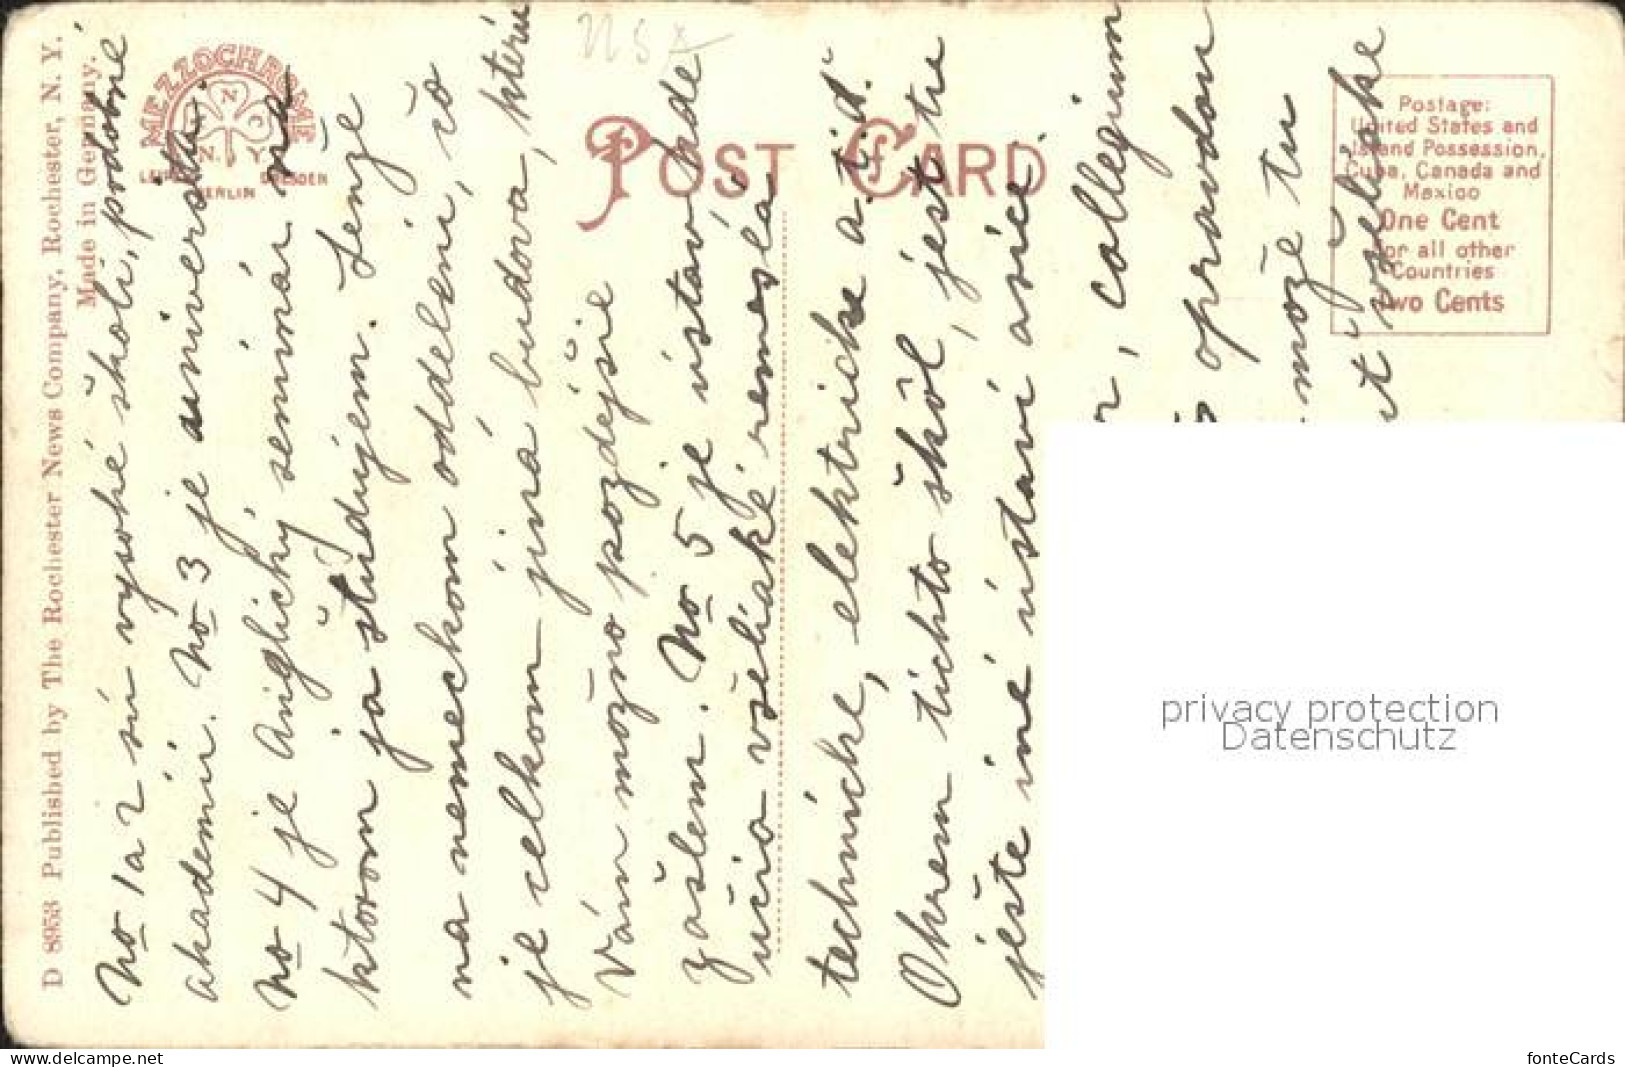 D 8953 Published by The Rochester News Company, Rochester, N. Y.
Made in Germany.
MEZZOCHROME
N. Y.
LEIPZIG BERLIN DRESDEN
USA
POST CARD
Postage:
United States and
Island Possession,
Cuba, Canada and
Mexico
One Cent
For all other
Countries
Two Cents
No 1 a 2 sú vysoké školi, podobné
akademii. No 3 je univerzita.
No 4 je Anglický seminár na
ktorom ja študujem. Lenže
na nemeckom oddelení, čo
je celkom jiná budova, kterú
Vám možno pozdejšie
zašlem. No 5 je ústav kde
učia všeliaké remeslá
technické, elektricke a.t.d.
Okrem tichto škôl, jest tu
ješte iné ústavi a sice:
r, collegium
opravdou
može tu
ut všeliake
privacy protection
Datenschutz
www.delcampe.net
fonteCards